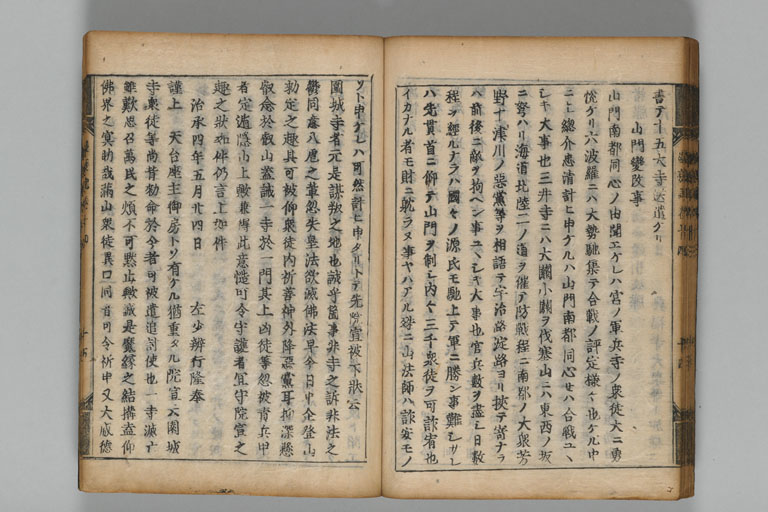 書テ十五大寺送遣ケリ
山門變改事
山門南都同心ノ由聞エケレハ宮ノ軍兵寺ノ衆徒大ニ勇
悦ケリ六波羅ニハ大勢馳集テ合戰ノ評定様々也ケル中
ニ上総介忠清計ヒ申ケルハ山門南都同心セハ合戰ユヽ
シキ大事也三井寺ニハ大關小關ヲ伐塞山ニハ東西ノ坂
ニ弩ハリ海道北陸二ノ道ヲ催テ防戰程ニ南都ノ大衆芳
野十津川ノ惡黨等ヲ相語テ宇治路淀路ヨリ挾テ寄ナラ
ハ前後ニ敵ヲ拘ヘン事ユヽシキ大事也官兵數ヲ盡シ日數
程ヲ經ルナラハ國々ノ源氏モ馳上テ軍ニ勝ン事難シサレ
ハ先貫首ニ仰テ山門ヲ制シ内々三千衆徒ヲ可誘宥也
イカナル者モ財ニ躭ラヌ事ヤハアル殊ニ山法師ハ詐安モノ
ソト申ケレハ可然計ヒ申タリトテ先院宣被下狀云
園城寺者元是謀叛之地也誠乎箇事非寺之訴非法之
欝同意八虐之輩忽失皇法欲滅佛法早今日中企登山
勅定之趣具可被仰衆徒内祈善神外降惡黨耳抑深懸
叡念於叡山盍誡一寺於一門其上凶徒等忽被責兵甲
者定逃隱山上歟兼得此意慥可令守護者宜守院宣之
趣之狀如件仍言上如件
治承四年五月廿四日 左少辨行隆奉
謹上 天台座主御房トソ有ケル猶重タル院宣云園城
寺衆徒等尚背勅命於今者可被遣追討使也一寺滅亡
雖歎思召萬民之煩不可黙止歟誠是魔縁之結搆盍仰
佛界之冥助哉滿山衆徒異口同音可令祈申又大底德